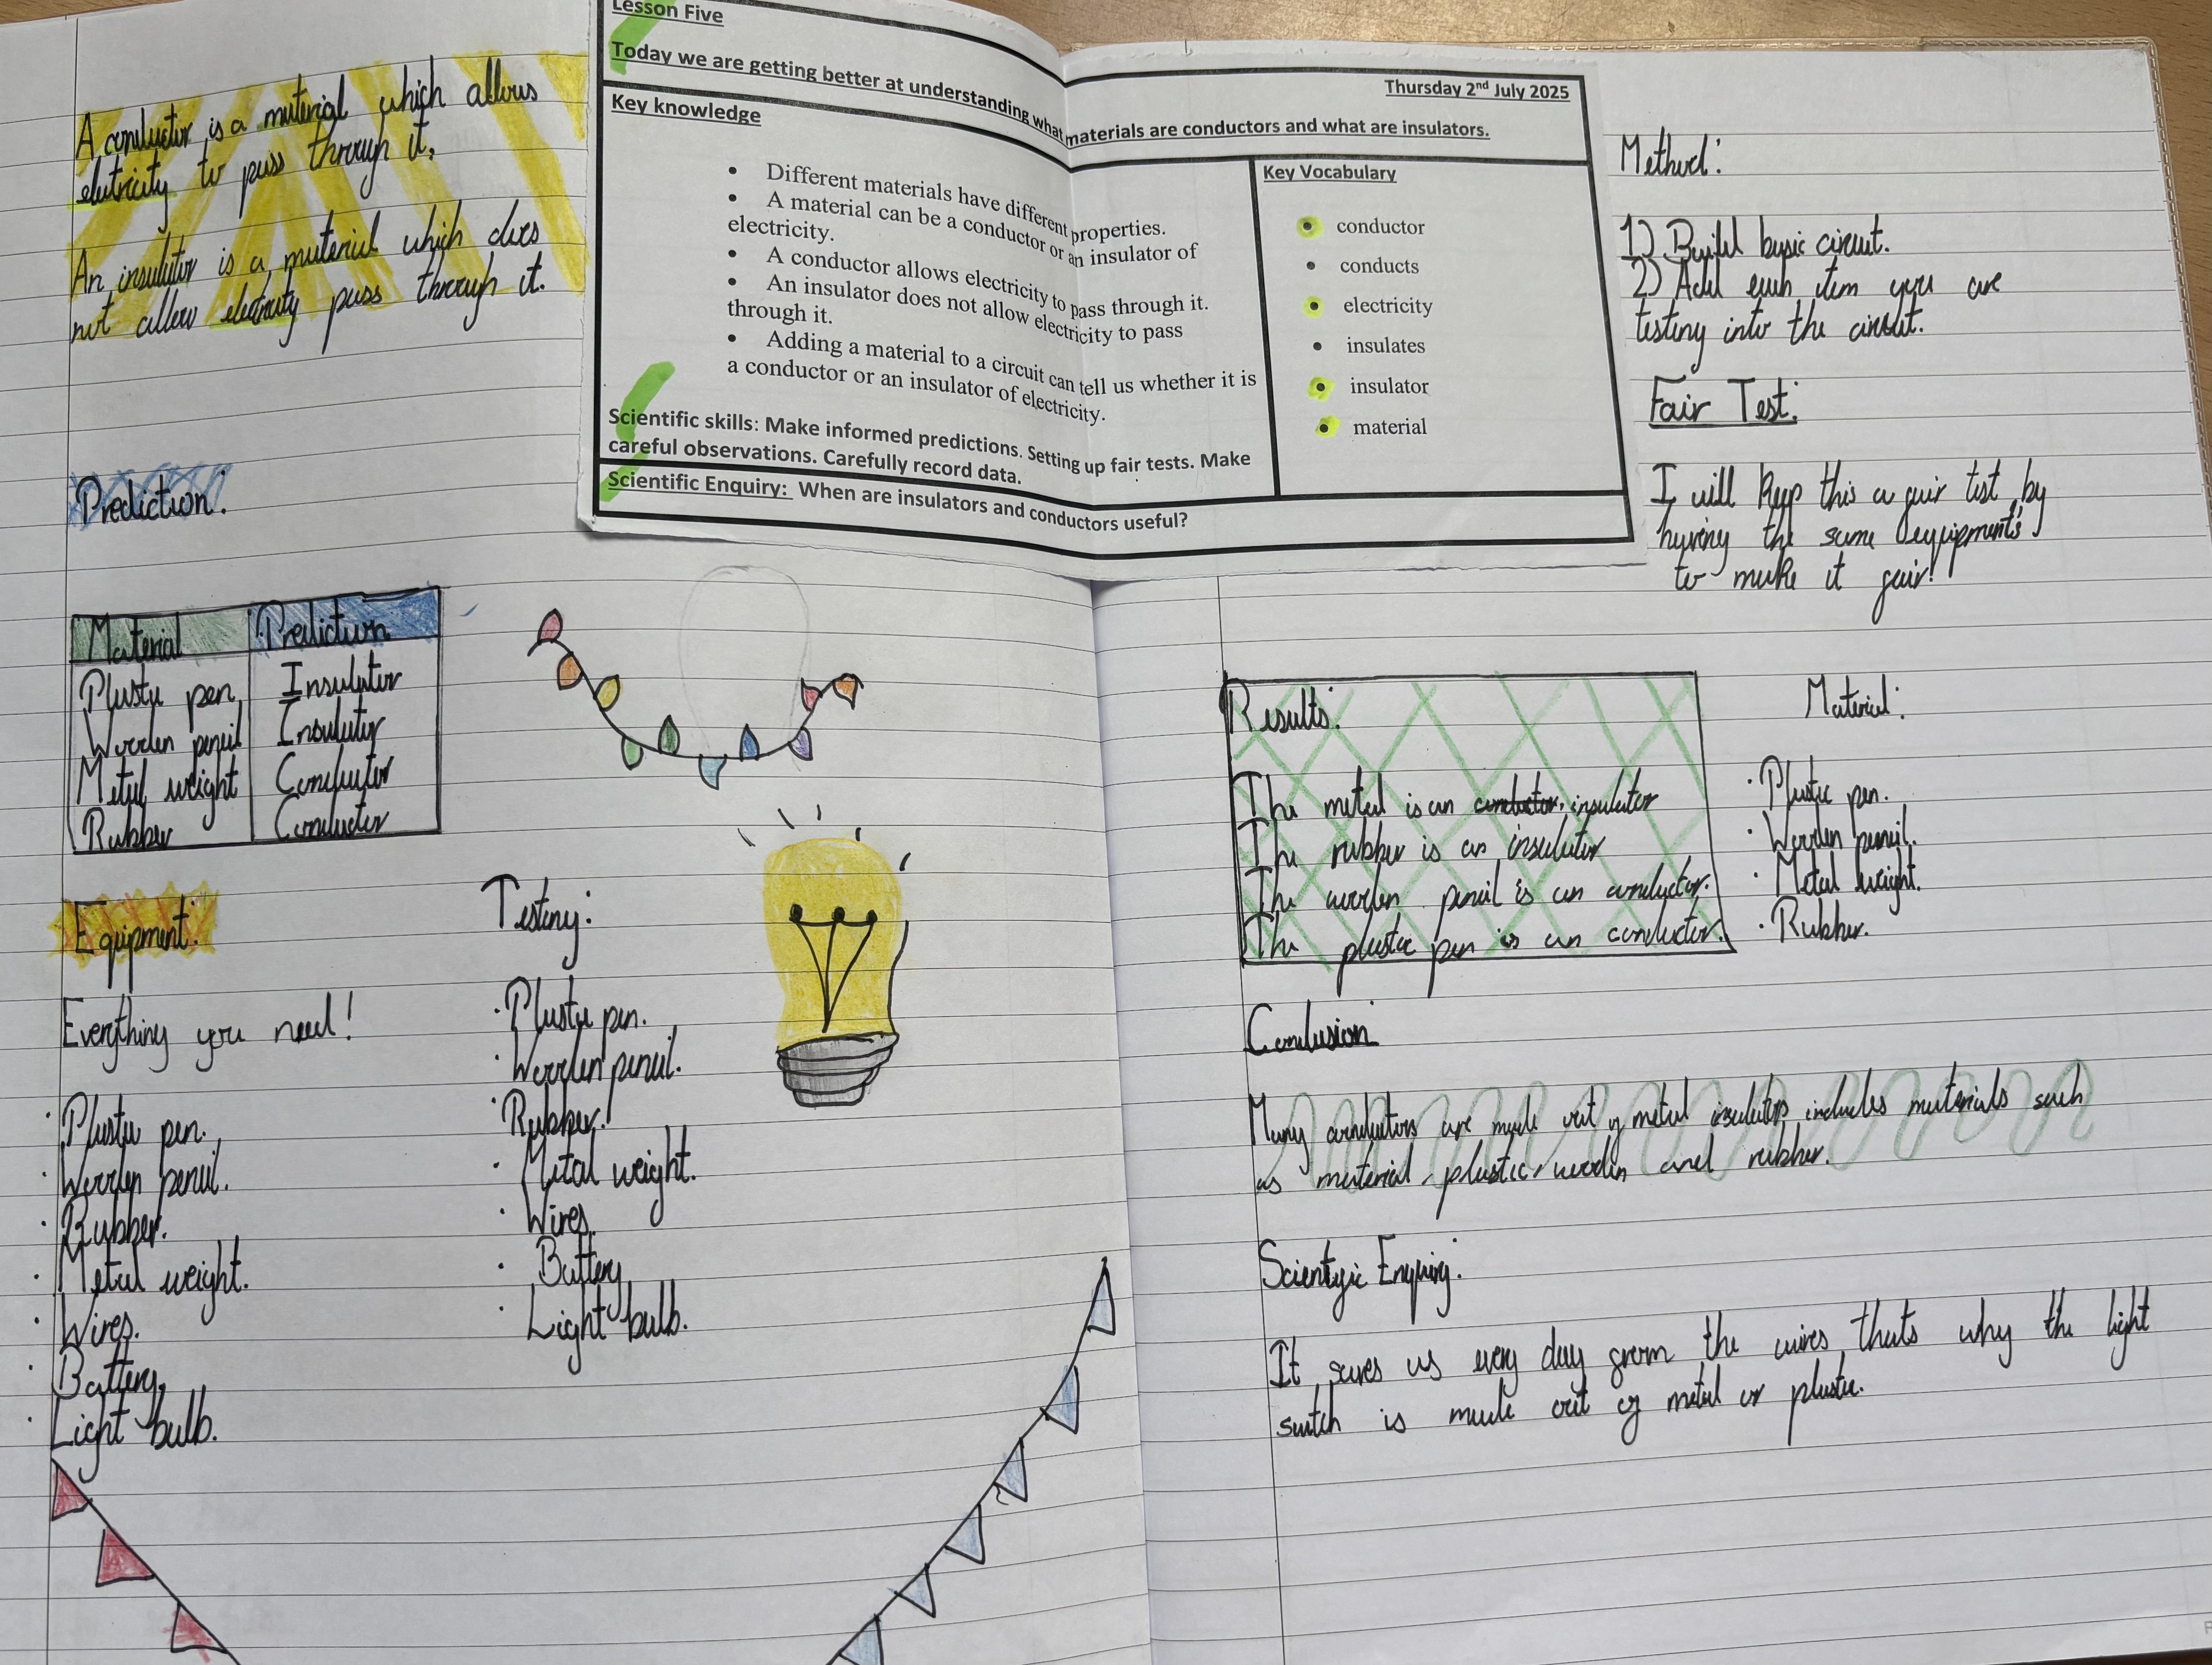 A conductor is a material which allows
electricity to pass through it,
An insulator is a material which does
not allow electricity pass through it.
Prediction:
Material Prediction
Plastic pen Insulator
Wooden pencil Insulator
Metal weight Conductor
Rubber Conductor
Equipment:
Everything you need!
· Plastic pen.
· Wooden pencil.
· Rubber.
· Metal weight.
· Wires.
· Battery.
· Light bulb.
Testing:
· Plastic pen.
· Wooden pencil.
· Rubber.
· Metal weight.
· Wires.
· Battery
· Light bulb.
Lesson Five
Thursday 2nd July 2025
Today we are getting better at understanding what materials are conductors and what are insulators.
Key knowledge
• Different materials have different properties.
• A material can be a conductor or an insulator of
electricity.
• A conductor allows electricity to pass through it.
• An insulator does not allow electricity to pass
through it.
• Adding a material to a circuit can tell us whether it is
a conductor or an insulator of electricity.
Key Vocabulary
• conductor
• conducts
• electricity
• insulates
• insulator
• material
Scientific skills: Make informed predictions. Setting up fair tests. Make
careful observations. Carefully record data.
Scientific Enquiry: When are insulators and conductors useful?
Method:
1) Build basic circuit.
2) Add each item you are
testing into the circuit.
Fair Test:
I will keep this a fair test by
having the same equipments
to make it fair!
Results:
The metal is an conductor, insulator
The rubber is an insulator
The wooden pencil is an conductor.
The plastic pen is an conductor.
Material:
· Plastic pen.
· Wooden pencil.
· Metal weight.
· Rubber.
Conclusion
Many conductors are made out of metal insulators includes materials such
as material, plastic, wooden and rubber.
Scientific Enquiry:
It saves us every day from the wires, thats why the light
switch is made out of metal or plastic.